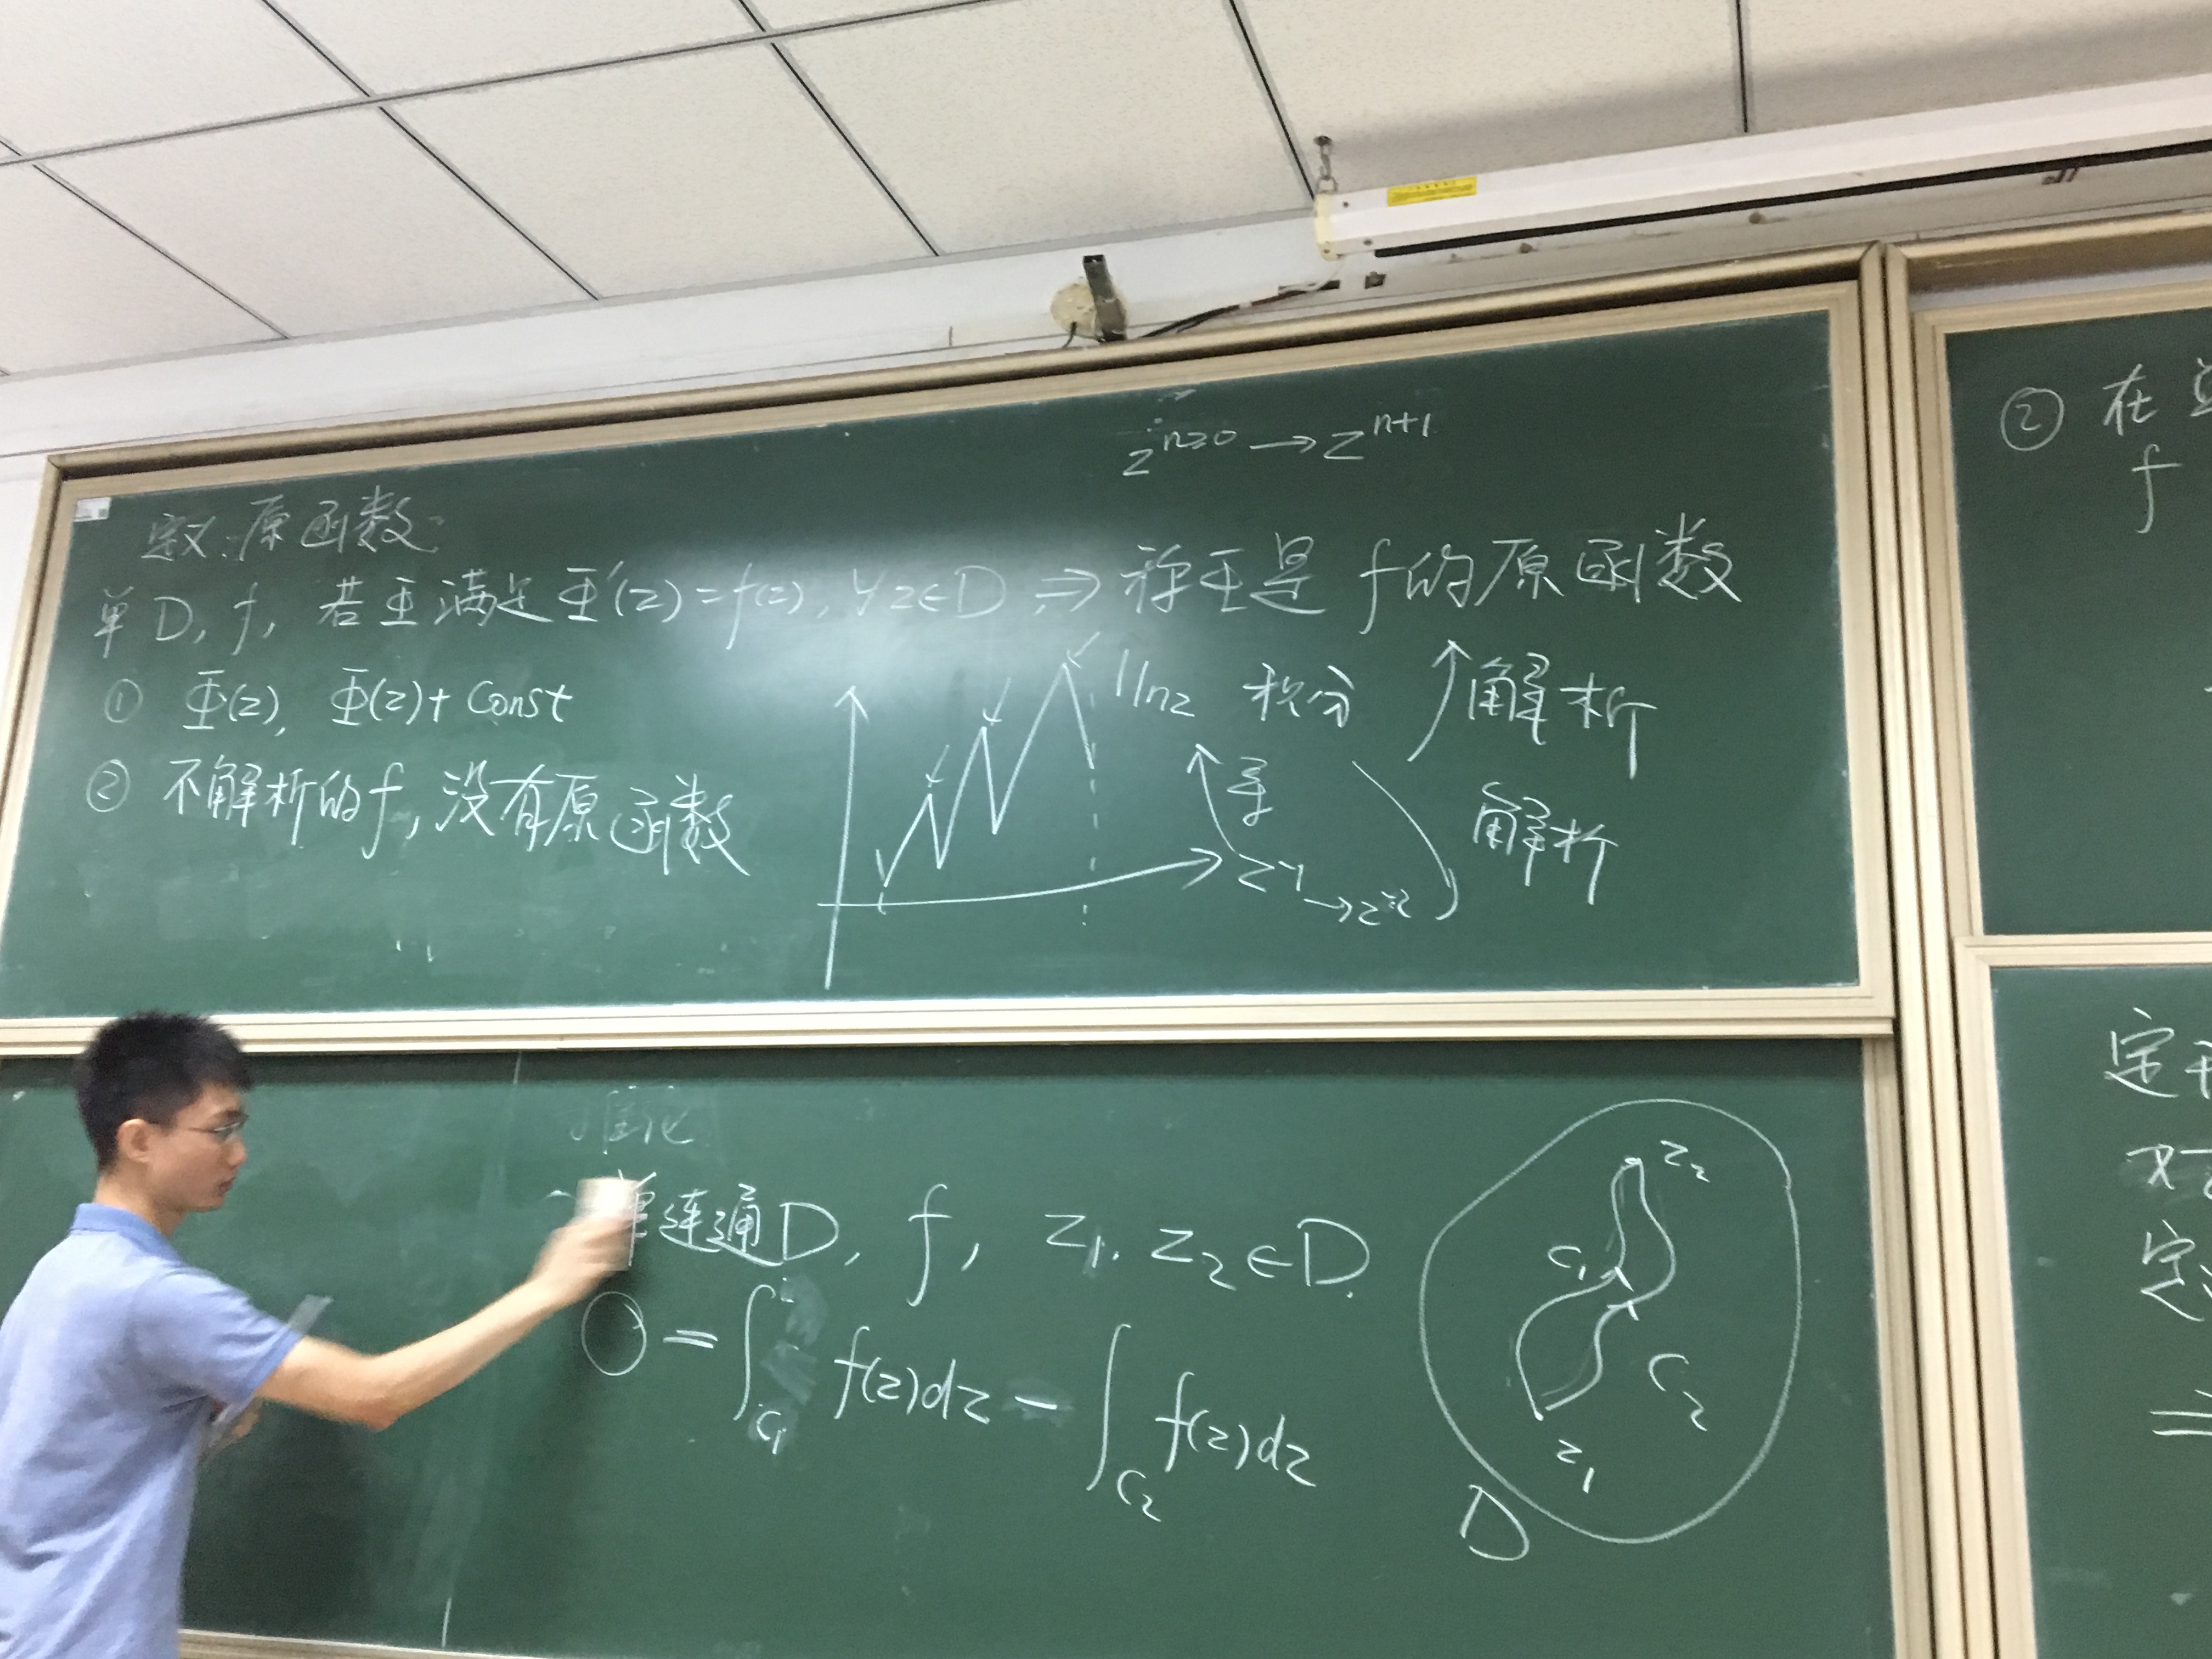 z^{n≥0} → z^{n+1}
定义:原函数:
单D, f, 若Φ满足Φ'(z)=f(z), ∀z∈D, ⇒ 称Φ是f的原函数
① Φ(z), Φ(z)+Const
lnz 积分 解析
② 不解析的f,没有原函数
导 解析
z^{-1} → z^{-2}
推论
单连通D, f, z₁, z₂∈D.
0 = ∫_{C₁} f(z)dz − ∫_{C₂} f(z)dz
z₂
C₁
C₂
z₁
D
② 在
f
定
定
=